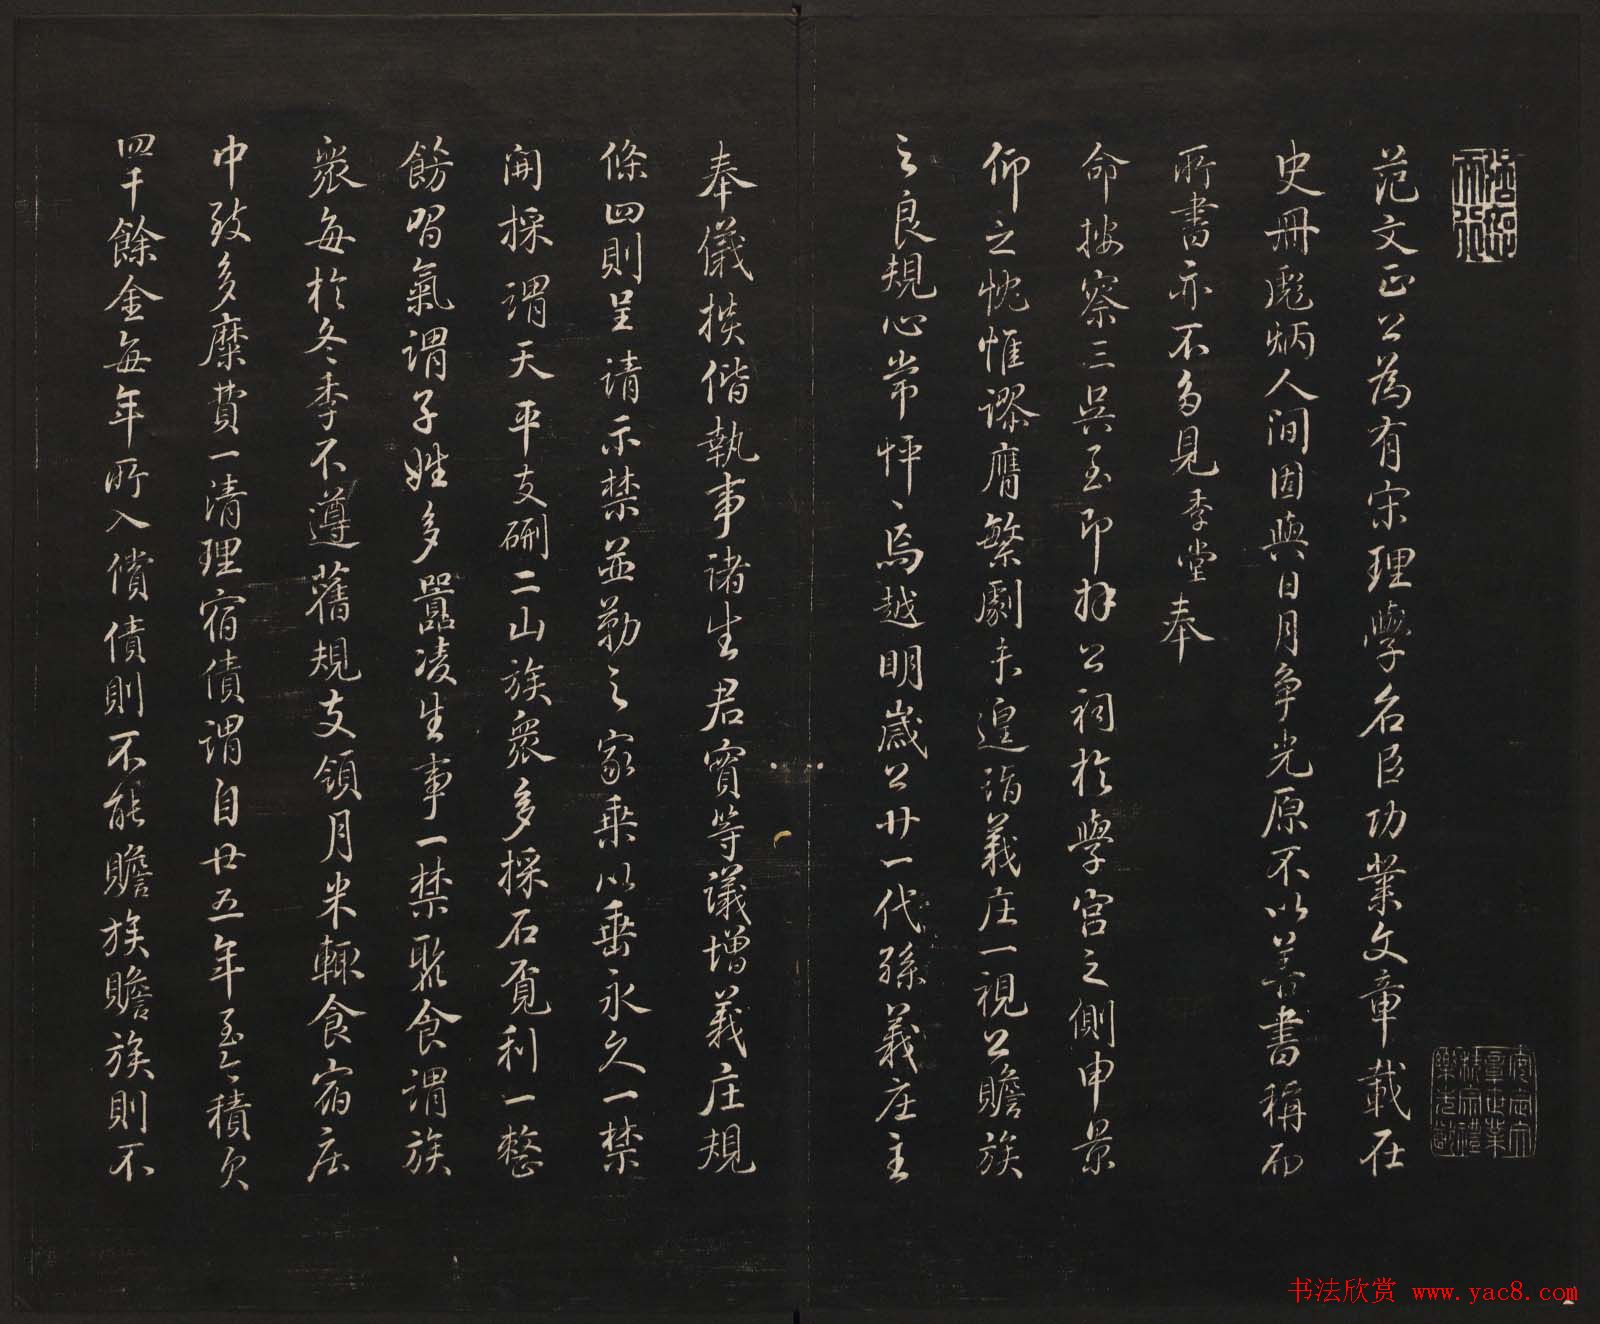 范文正公為有宋理學名臣功業文章載在
史冊彪炳人間固與日月爭光原不以善書稱而
所書亦不多見季堂奉
命按察三吳至即拜公祠於學宮之側申景
仰之忱惟謬膺繁劇未遑詣義庄一視公贍族
之良規心常怦怦焉越明歲公廿一代孫義庄主
奉儀揆偕執事諸生君實等議增義庄規
條四則呈請示禁並勒之家乘以垂永久一禁
開採謂天平支硎二山族眾多採石覓利一整
飭習氣謂子姓多囂凌生事一禁聚食謂族
眾每於冬季不遵舊規支領月米輒食宿庄
中致多糜費一清理宿債謂自廿五年至今積欠
四千餘金每年所入償債則不能贍族贍族則不
书法欣赏 www.yac8.com